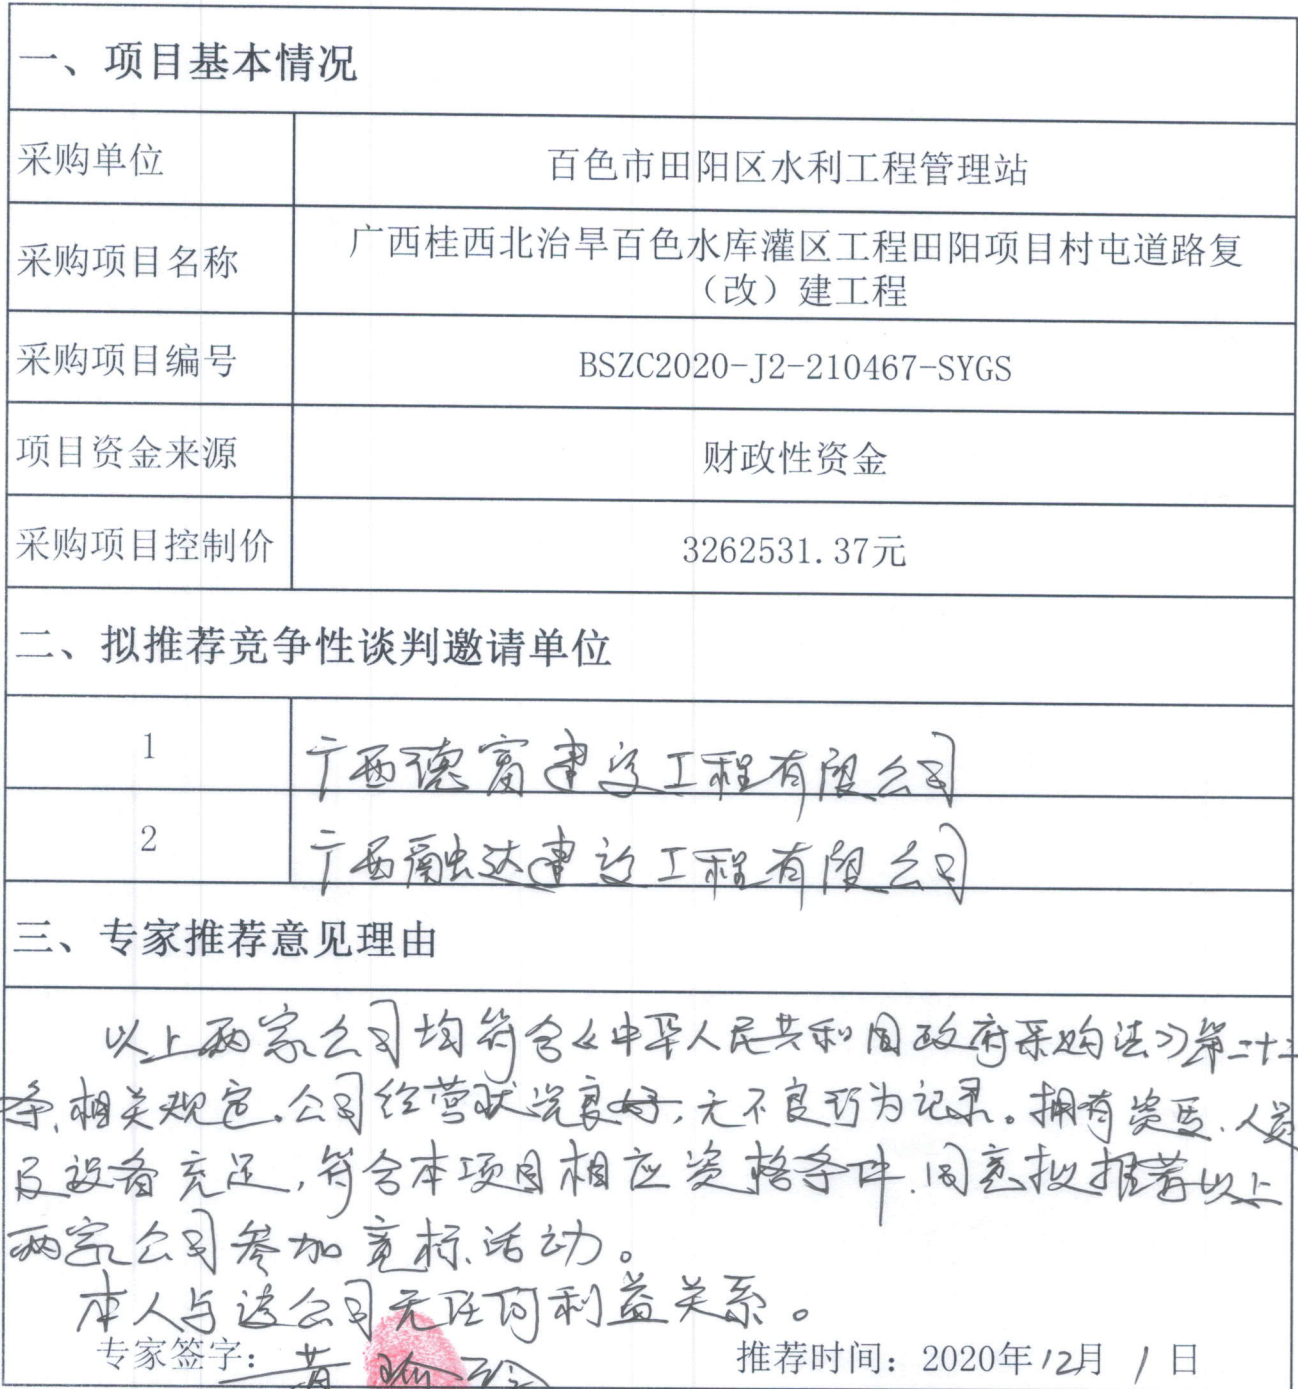 一、项目基本情况
采购单位
百色市田阳区水利工程管理站
采购项目名称
广西桂西北治旱百色水库灌区工程田阳项目村屯道路复
（改）建工程
采购项目编号
BSZC2020-J2-210467-SYGS
项目资金来源
财政性资金
采购项目控制价
3262531.37元
二、拟推荐竞争性谈判邀请单位
1
广西德富建设工程有限公司
2
广西融达建设工程有限公司
三、专家推荐意见理由
以上两家公司均符合《中华人民共和国政府采购法》第二十二
条相关规定。公司经营状况良好，无不良行为记录。拥有资质、人员
及设备充足，符合本项目相应资格条件。同意拟推荐以上
两家公司参加竞标活动。
本人与该公司无任何利益关系。
专家签字：黄
推荐时间：2020年12月1日